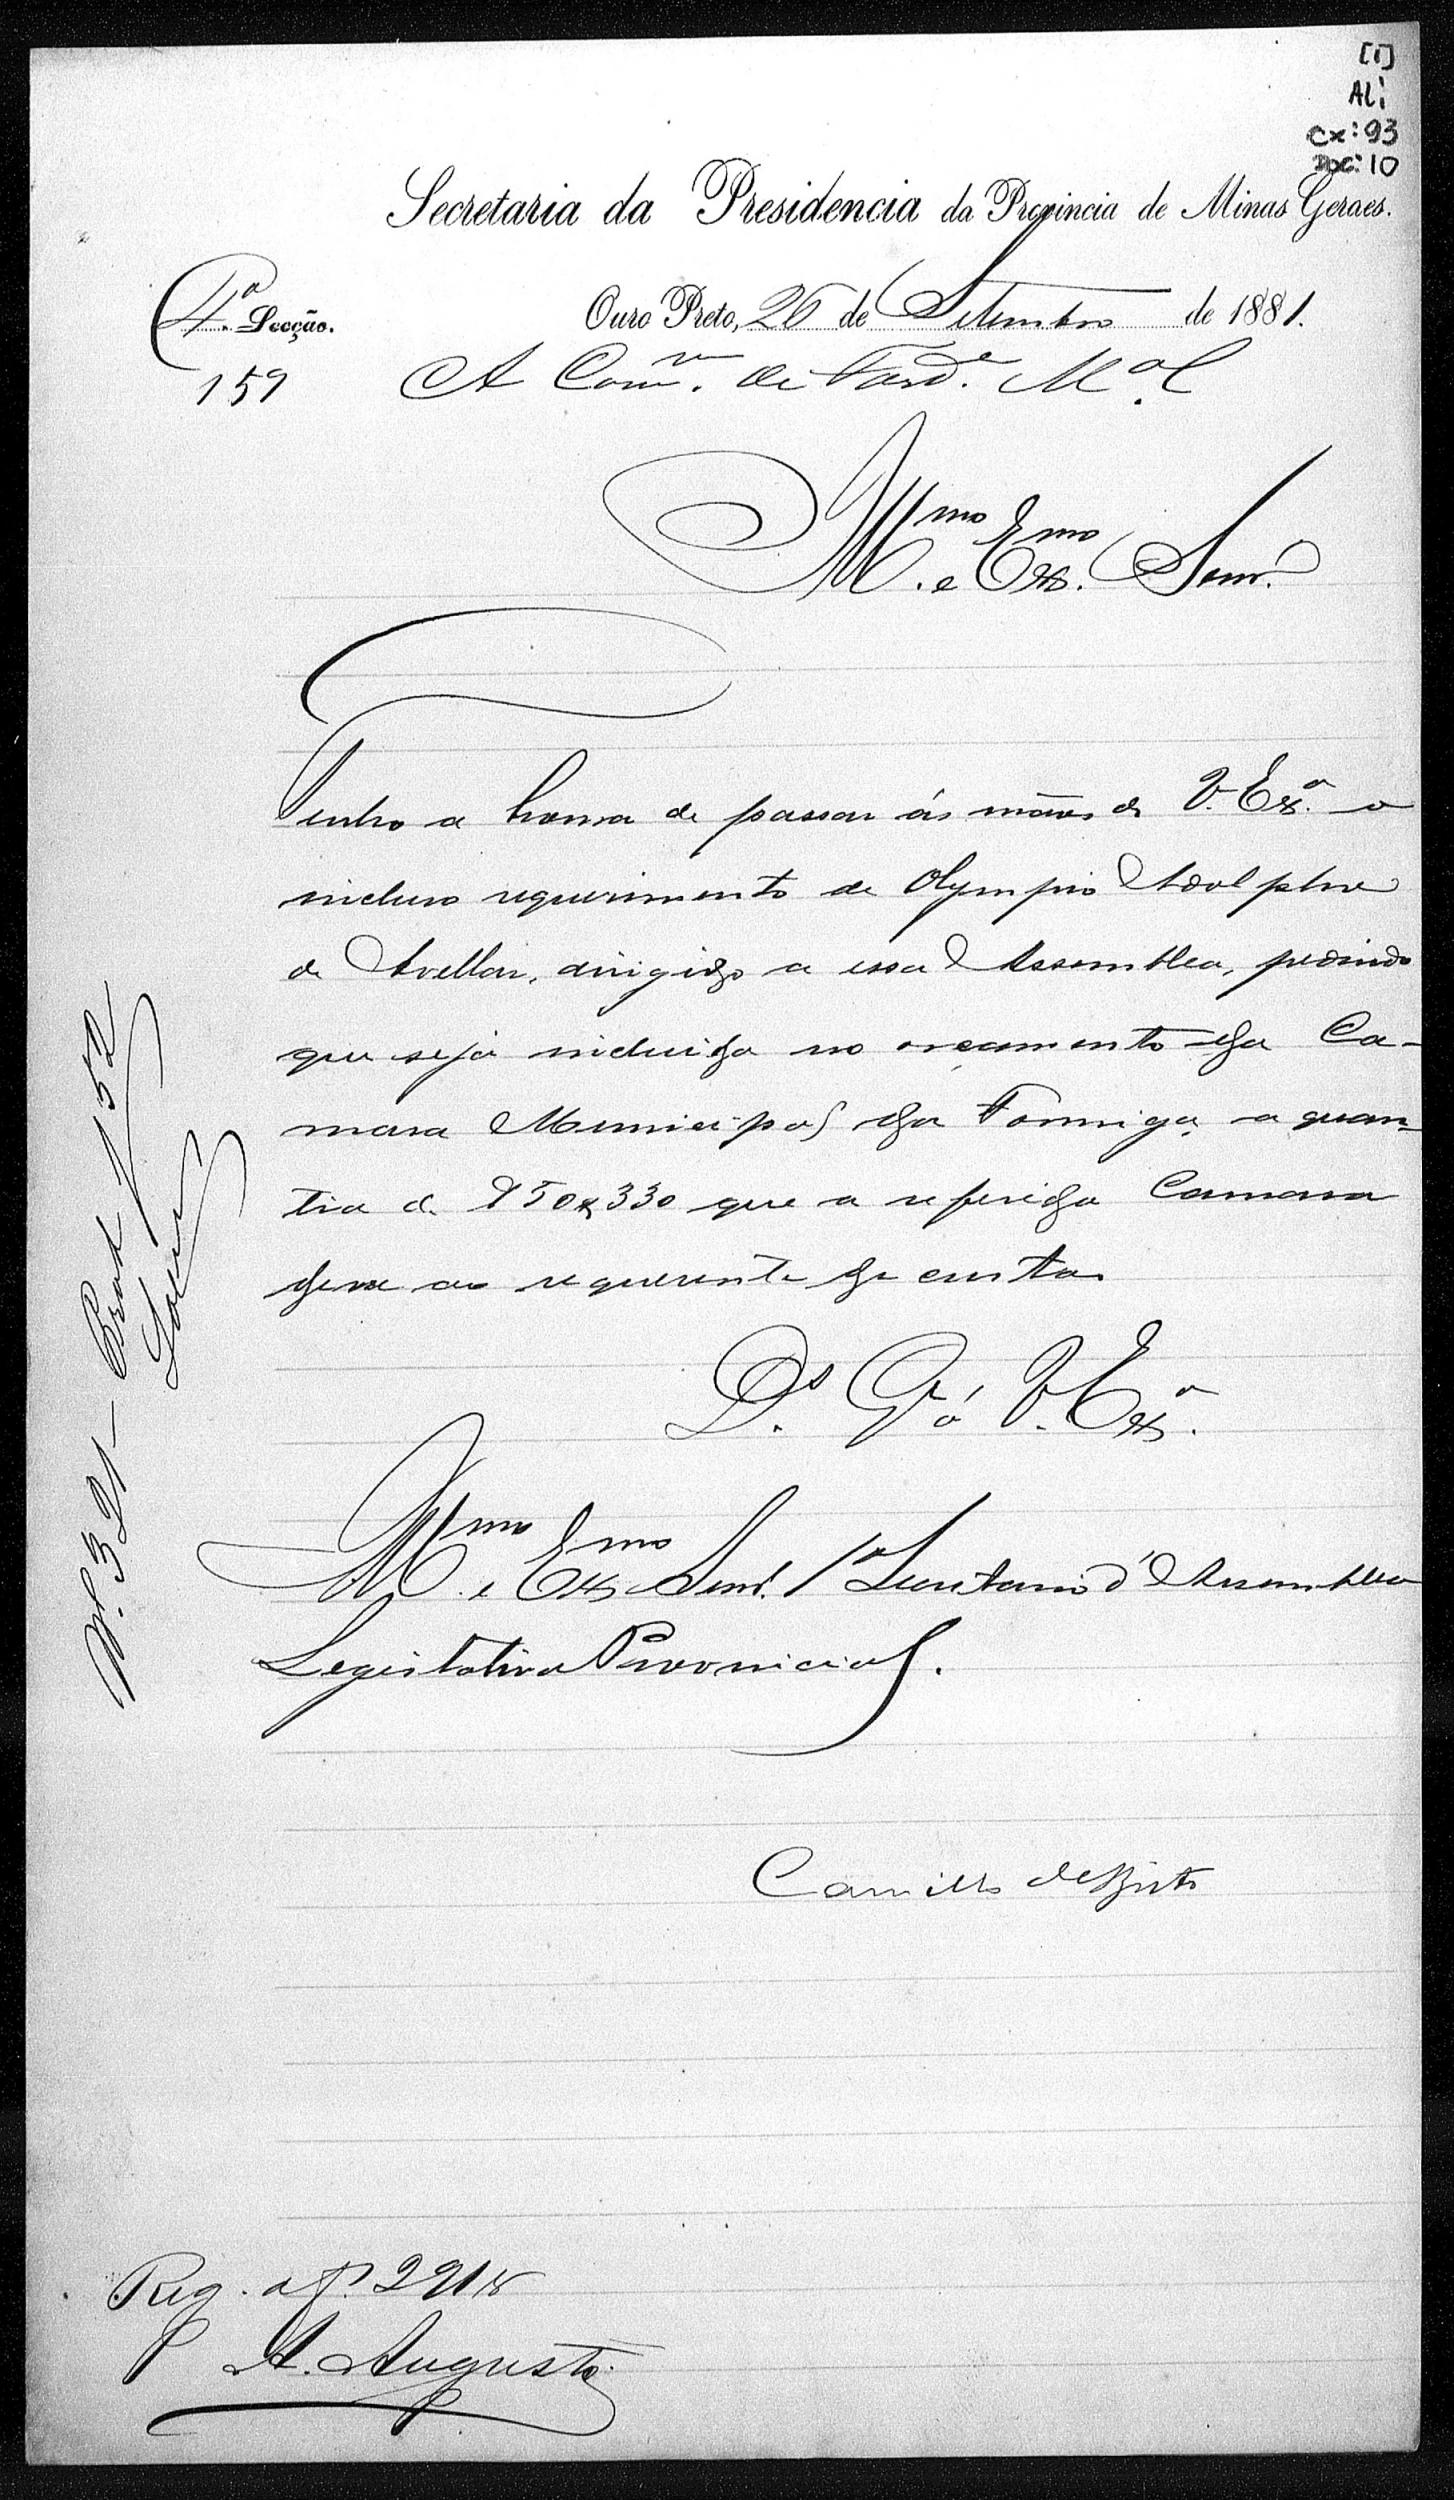 [1]
ALi
cx: 93
Doc: 10
Secretaria da Presidencia da Provincia de Minas Geraes.
4ª Secção.
Ouro Preto, 26 de Setembro de 1881.
159
A Com.m de Fasd.e M.al
Ill.mo e Ex.mo Senr.
Tenho a honra de passar ás mãos de V. Ex.a o
incluso requerimento de Olympio Adolpho
de Avellar, dirigido a essa Assemblea, pedindo
que seja incluida no orçamento da Ca-
mara Municipal da Formiga a quan-
tia de 950$330 que a referida Camara
deve ao requerente de custas
D.s G.e á V. Ex.a
Ill.mo e Ex.mo Senr. 1º Secretario d'Assemblea
Legislativa Provincial.
Camillo de Brito
N.º 321
Reg. a f.
A. Augusto